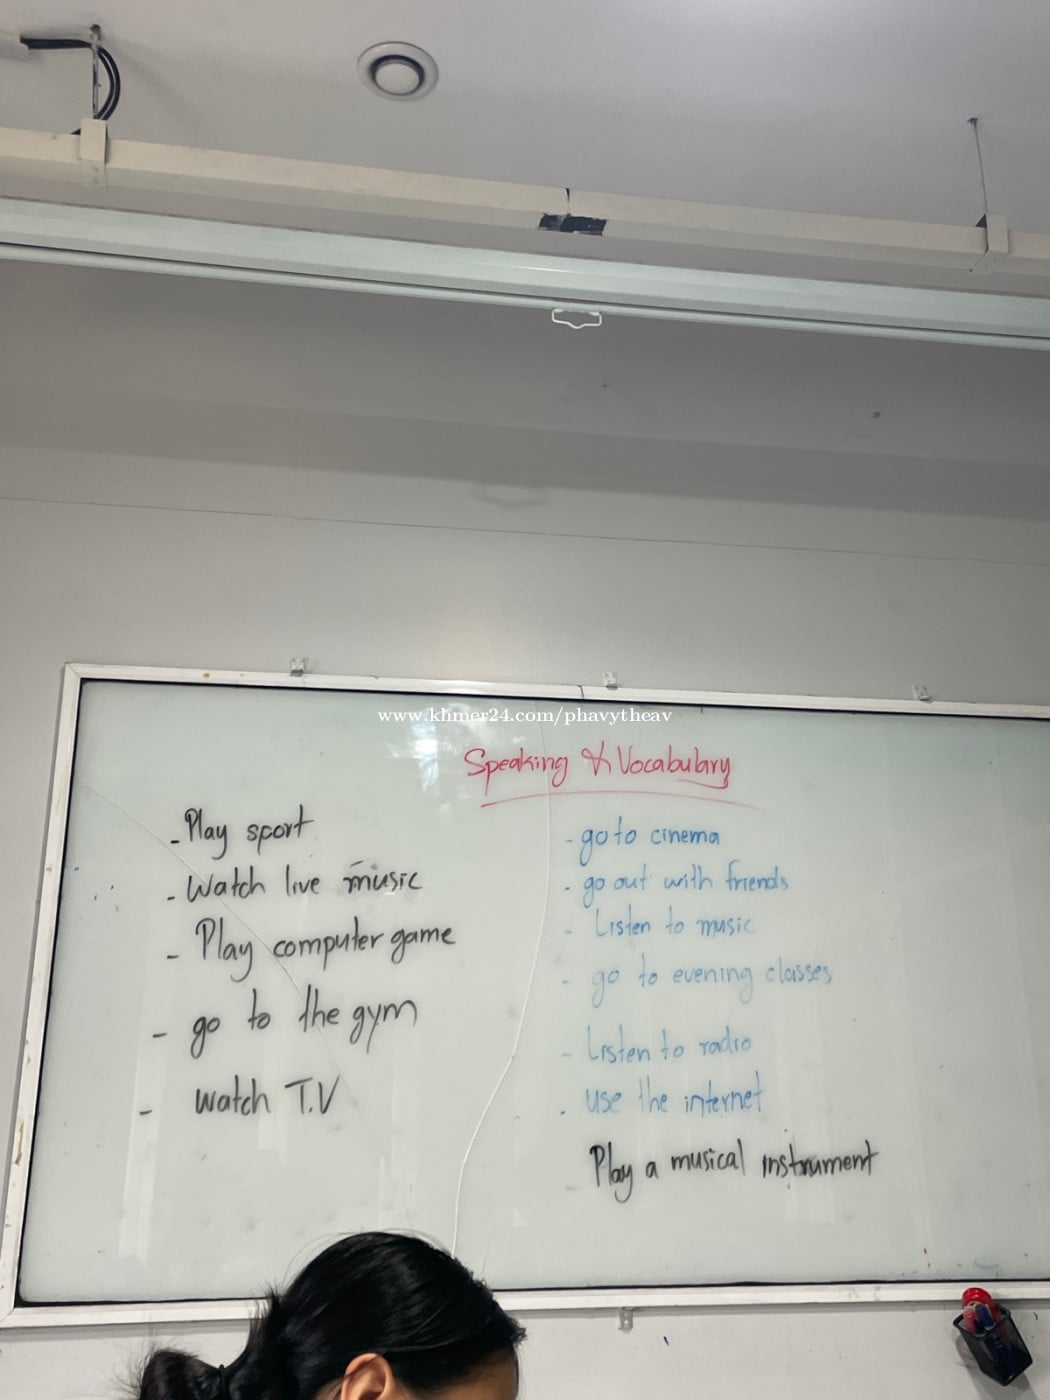 www.khmer24.com/phavytheav
Speaking & Vocabulary
- Play sport
- Watch live music
- Play computer game
- go to the gym
- watch T.V
- go to cinema
- go out with friends
- Listen to music
- go to evening classes
- Listen to radio
- use the internet
- Play a musical instrument